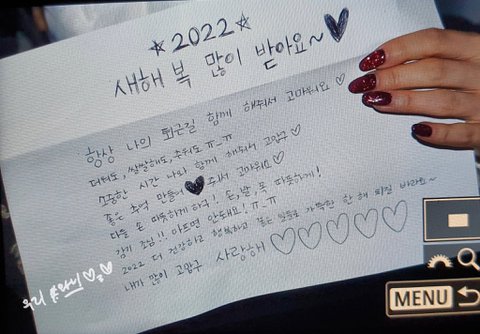 ☆2022☆
새해 복 많이 받아요~♥
항상 나의 퇴근길 함께 해줘서 고마워요♡
더워도, 쌀쌀해도, 추워도 ㅠ_ㅠ
소중한 시간 나와 함께 해줘서 고맙구♡
좋은 추억 만들어♥주서 고마워요♡
다들 손 따뜻하게 하구! 손, 발, 목 따뜻하게!
감기 조심!! 아프면 안돼요! ㅠ-ㅠ
2022 더 건강하고 행복하고 좋은 일들로 가득한 한 해 되길 바라요~
내가 많이 고맙구 사랑해♡♡♡♡♡
우리
MENU